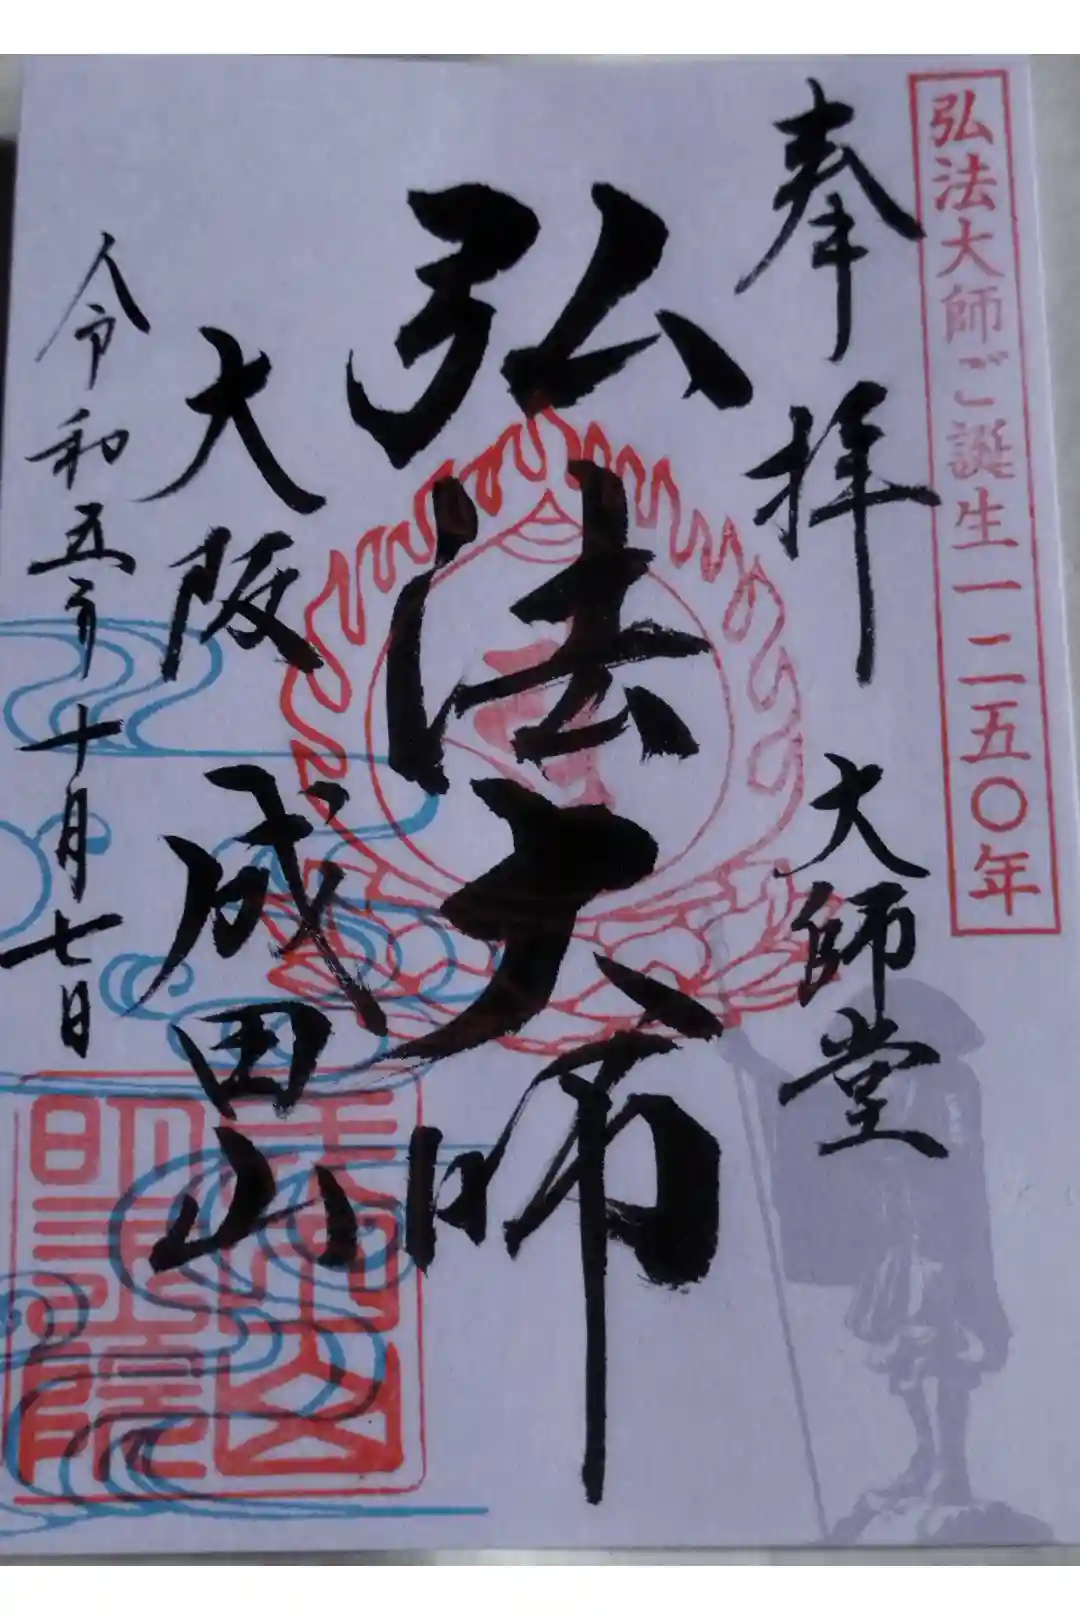 弘法大師ご誕生一二五〇年
奉拝
大師堂
弘法大師
大阪
成田山
令和五年十月七日
成田山
明王院